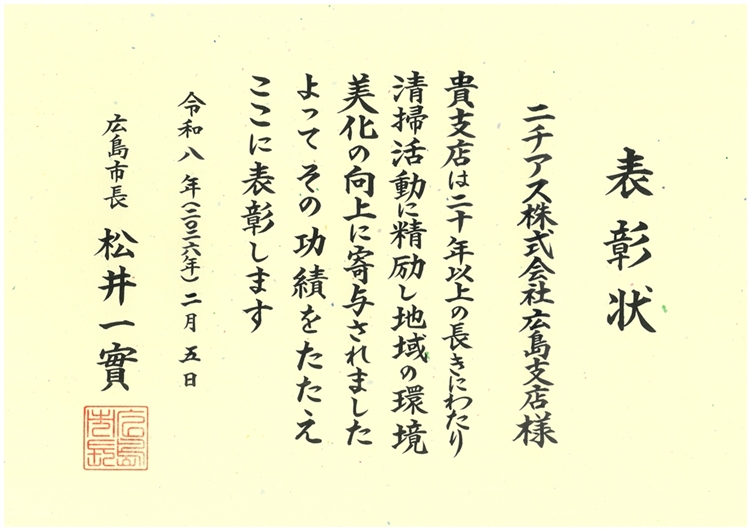 表彰状
ニチアス株式会社広島支店様
貴支店は二十年以上の長きにわたり
清掃活動に精励し地域の環境
美化の向上に寄与されました
よってその功績をたたえ
ここに表彰します
令和八年(二〇二六年)二月五日
広島市長 松井一實
広島市長